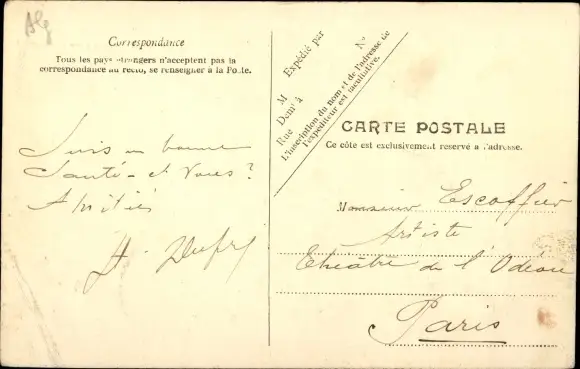 Alg
Correspondance
Tous les pays etrangers n'acceptent pas la
correspondance au recto, se renseigner à la Poste.
Suis en bonne
Santé - et Vous?
Amitiés
H. Dufry
Expédié par
M
Nº
Demt à
Rue
L'inscription du nom et de l'adresse de
l'expéditeur est facultative.
CARTE POSTALE
Ce côté est exclusivement reservé à l'adresse.
Monsieur Escoffier
Artiste
Théâtre de l'Odéon
Paris